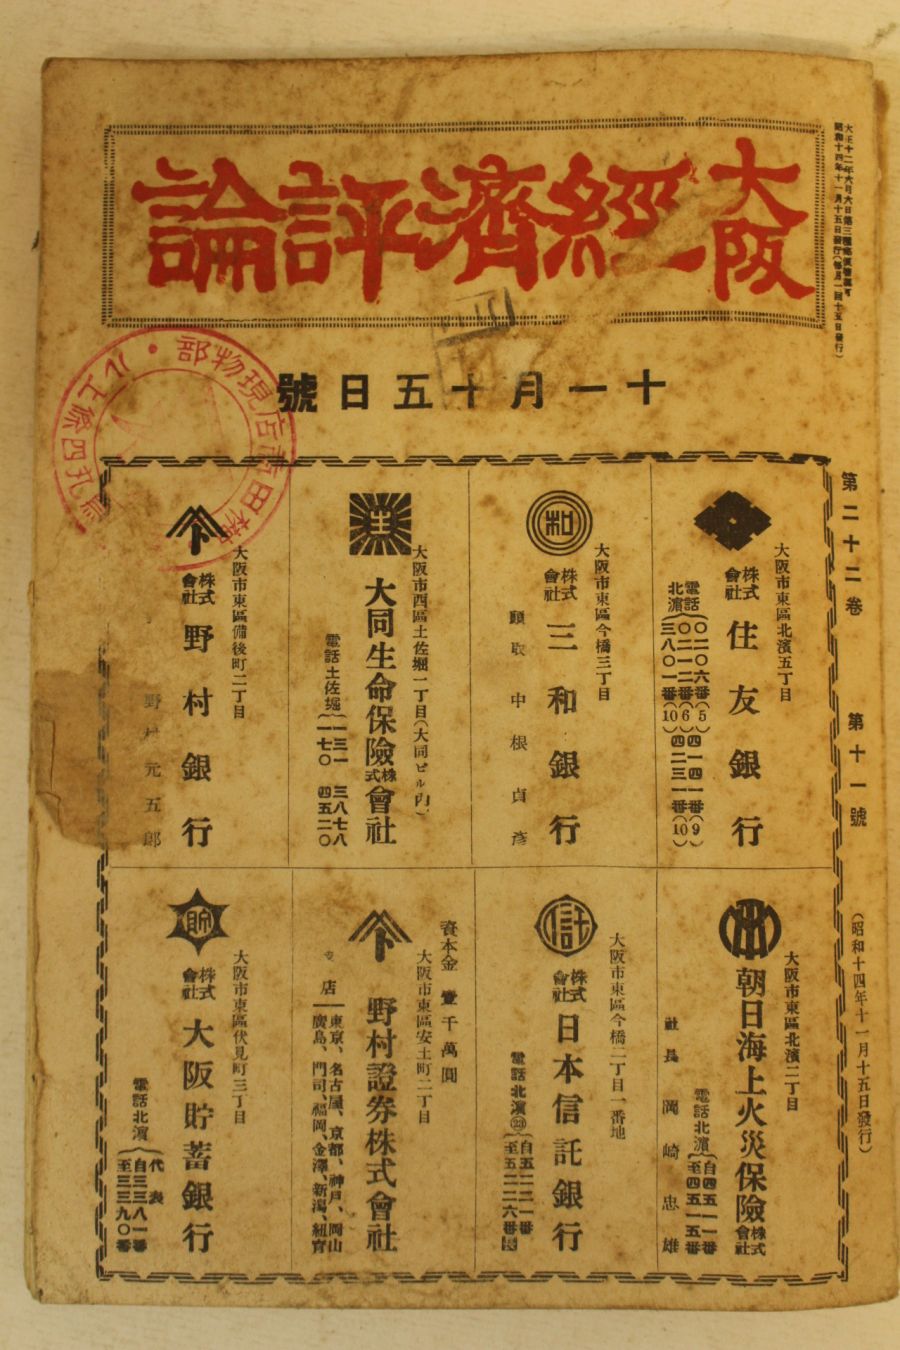 大正十二年六月六日第三種郵便物認可
昭和十四年十一月十五日發行(每月一回十五日發行)
大阪經濟評論
十一月十五日號
第二十二卷 第十一號
(昭和十四年十一月十五日發行)
大阪市東區北濱五丁目
株式會社 住友銀行
電話北濱
〇二〇六番(5)四一四一番(9)
〇二一二番(6)四二三一番(10)
三八〇一番(10)
大阪市東區今橋三丁目
和
株式會社 三和銀行
頭取 中根貞彥
大阪市西區土佐堀一丁目(大同ビル內)
生
大同生命保險株式會社
電話土佐堀
一三一一 三八七八
一七〇 四五二〇
大阪市東區備後町二丁目
株式會社 野村銀行
野村元五郎
大阪市東區北濱二丁目
朝日海上火災保險株式會社
電話北濱
自四五一一番
至四五一五番
社長 岡崎忠雄
大阪市東區今橋二丁目一番地
信託
株式會社 日本信託銀行
電話北濱㉓
自五二二一番
至五二二六番
資本金 壹千萬圓
大阪市東區安土町二丁目
野村證券株式會社
支店
東京、名古屋、京都、神戶、岡山
廣島、門司、福岡、金澤、新潟、紐育
大阪市東區伏見町三丁目
貯
株式會社 大阪貯蓄銀行
電話北濱
代表
自三三八一番
至三三九〇番
現物部